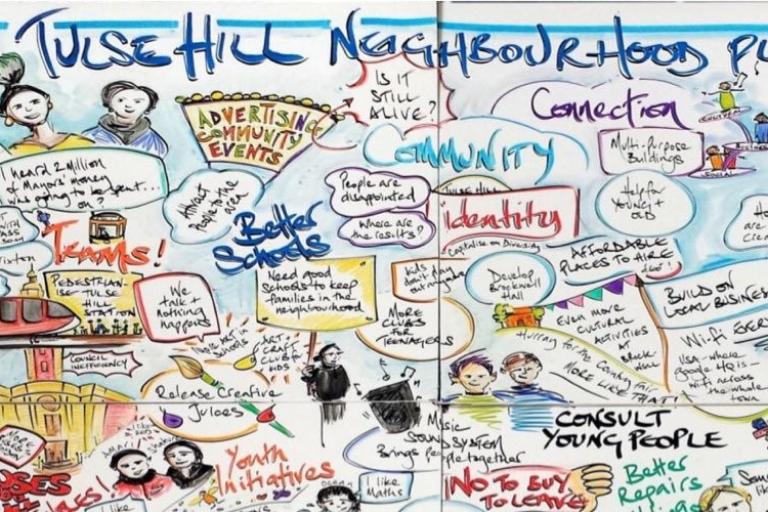 TULSE HILL NEIGHBOURHOOD
IS IT
STILL
ALIVE?
ADVERTISING
COMMUNITY
EVENTS
Connection
Multi-Purpose
Buildings
COMMUNITY
I heard 2 million
of Mayors' money
was going to be spent...
on?
Attract
People to the
area
People are
disappointed
Where are
the results?
TULSE HILL
Identity
Capitalise on Diversity
Help for
YOUNG +
OLD
Better
Schools
TEAMS!
PEDESTRIAN-
ISE-TULSE
HILL
STATION
We
talk +
nothing
happens
Need good
schools to keep
families in the
neighbourhood
Kids
don't
our
MORE
CLUBS
FOR
TEENAGERS
Develop
Brockwell
Hall
AFFORDABLE
PLACES TO HIRE
BUILD ON
LOCAL BUSINES
EVEN MORE
CULTURAL
ACTIVITIES
AT
Hurray for the Country fair
MORE LIKE THAT!
Wi-fi EVERY
USA-where
google HQ is-
Wifi across
the whole
town
COUNCIL
INEFFICIENCY
More ART in
Schools
ART +
CRAFT
CLUBS for
KIDS
Release Creative
Juices
Music
SOUND SYSTEM
Brings people together
CONSULT
YOUNG PEOPLE
Youth
Initiatives
I like
Maths
NO TO BUY
TO LEAVE
Better
Repairs
I like